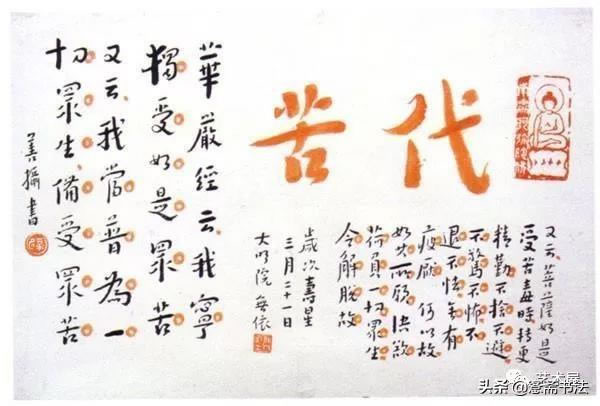 代苦
華嚴經云我寧
獨受如是眾苦
又云我當普為一
切眾生備受眾苦
善攝書
又云菩薩如是
受苦毒時轉更
精勤不捨不避
不驚不怖不
退不怯無有
疲厭何以故
如其所願決欲
荷負一切眾生
令解脫故
歲次壽星
三月二十一日
大明院無依
艺术屋
头条@斋书法